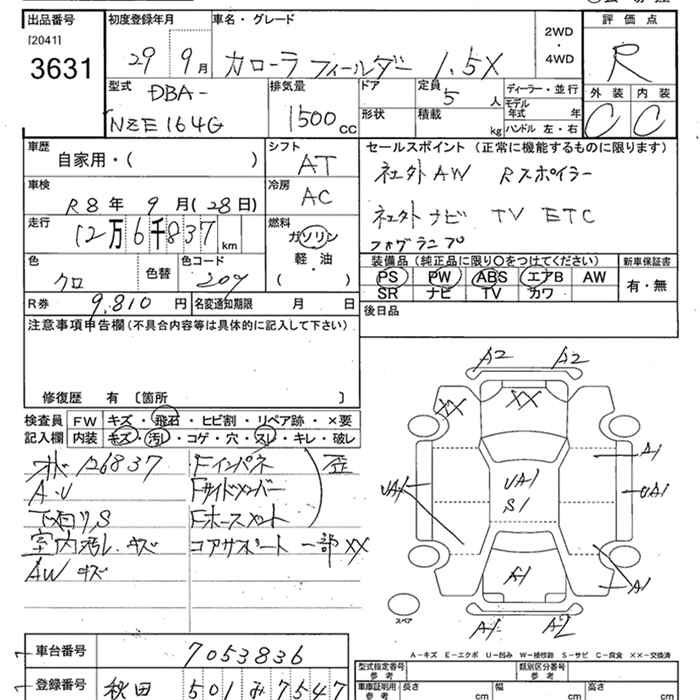 出品番号
[2041]
3631
初度登録年月
29 9月
車名・グレード
カローラ フィールダー 1.5X
2WD
・
4WD
評価点
R
外装 内装
C C
型式
DBA-
NZE164G
排気量
1500 cc
ドア
定員
5人
形状
積載
kg
ディーラー・並行
モデル年式 年
ハンドル 左・右
車歴
自家用・( )
シフト
AT
車検
R8年 9月(28日)
冷房
AC
走行
12万6千837 km
燃料
ガソリン
軽・油
( )
色
クロ
色替
色コード
209
R券 9,810 円
名変通知期限 月 日
セールスポイント(正常に機能するものに限ります)
社外AW Rスポイラー
社外ナビ TV ETC
フォグランプ
装備品(純正品に限り○をつけてください)
PS PW ABS エアB AW
SR ナビ TV カワ
新車保証書
有・無
後日品
注意事項申告欄(不具合内容等は具体的に記入して下さい)
修復歴 有 〔箇所 〕
検査員
記入欄
FW キズ・飛石・ヒビ割・リペア跡・×要
内装 キズ・汚レ・コゲ・穴・スレ・キレ・破レ
126837
A・U
下回りS
室内汚レ キズ
AW キズ
Fインパネ 歪
Fサイドメンバー
Fホースメント
コアサポート 一部XX
A2 A2
XX XX
A1
UA1
UA1
S1
UA1
A1
A1
A1 A2
スペア
A-キズ E-エクボ U-凹み W-補修跡 S-サビ C-腐食 XX-交換済
車台番号
7053836
登録番号
秋田 501 み 7547
型式指定番号
参考
類別区分番号
参考
車庫証明用
参考
長さ cm
幅 cm
高さ cm